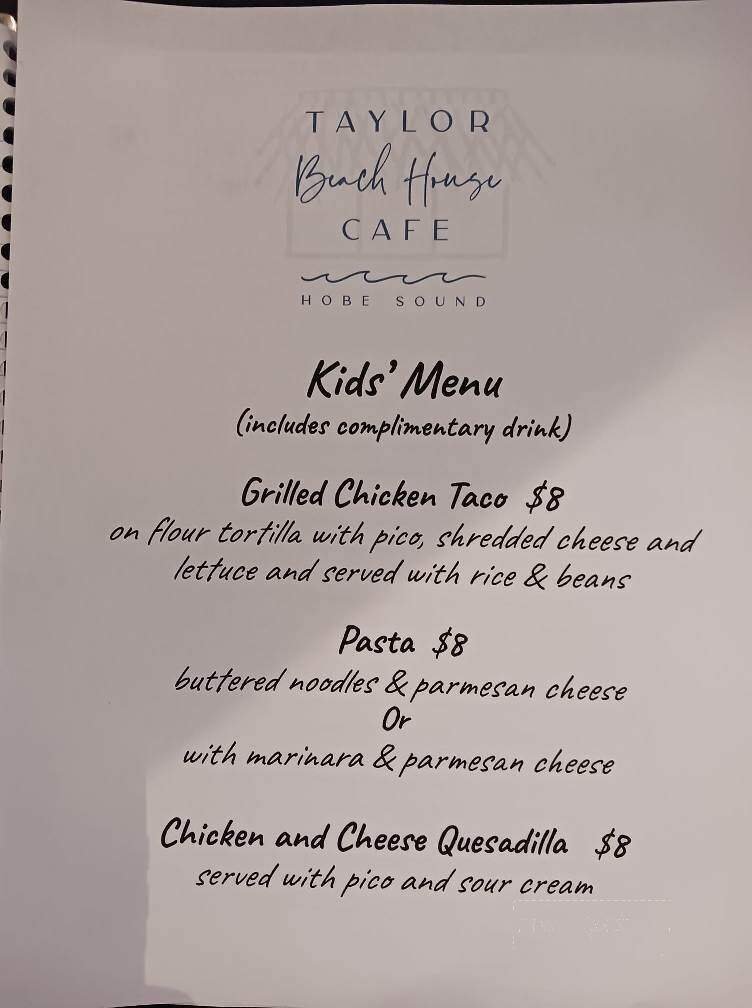 TAYLOR
Beach House
CAFE
HOBE SOUND
Kids' Menu
(includes complimentary drink)
Grilled Chicken Taco $8
on flour tortilla with pico, shredded cheese and
lettuce and served with rice & beans
Pasta $8
buttered noodles & parmesan cheese
Or
with marinara & parmesan cheese
Chicken and Cheese Quesadilla $8
served with pico and sour cream